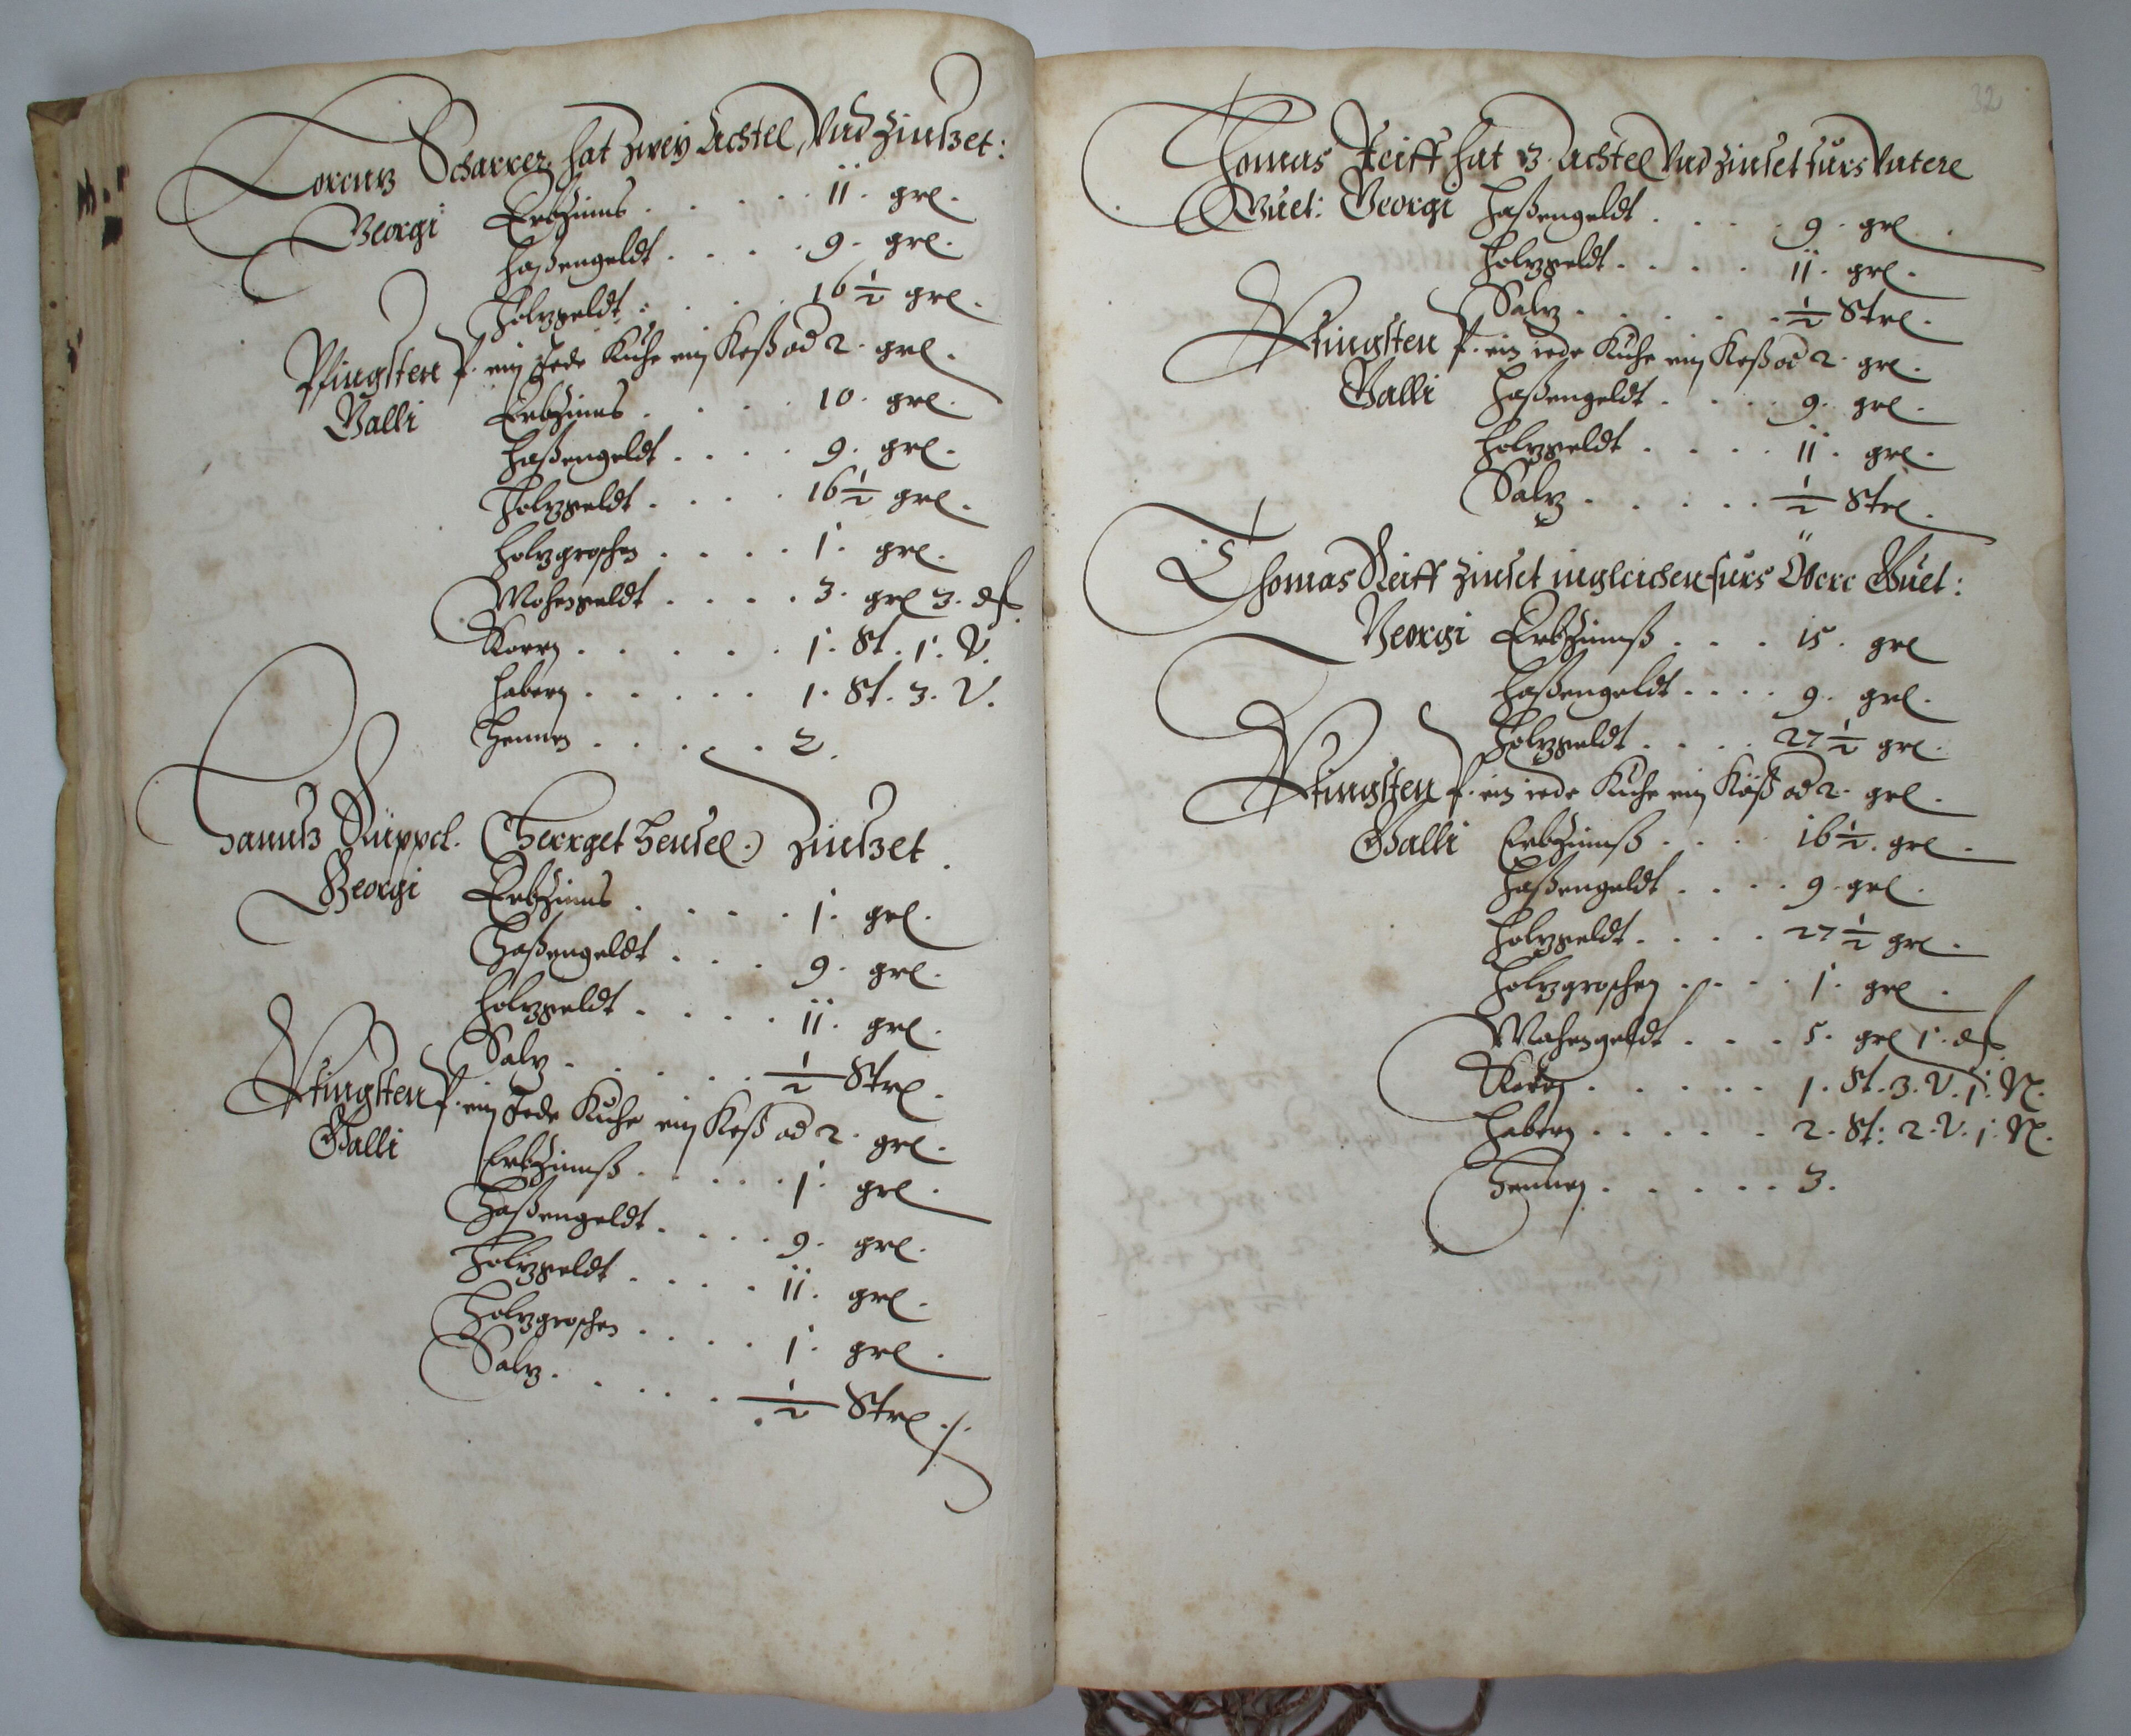 Lorentz Scharrer hat zweÿ Achtel, Vnd Zinßet:
Georgi Erbzinns . . . . . 11. grl.
Haßengeldt . . . . 9. grl.
Holzgeldt : . . . 16 ½ grl.
Pfingsten p. ein Jede Kuhe ein Keß od 2. grl.
Galli Erbzinns . . . . 10. grl.
Haßengeldt . . . . 9. grl.
Holzgeldt . . . . 16 ½ grl.
Holzgroschen . . . . 1. grl.
Mohengeldt . . . . 3. grl 3. d
Korn . . . . . 1. St. 1. V.
Habern . . . . . 1. St. 3. V.
Hennen . . . . . 2.
Hannß Rüppel. (Georget Hensel.) Zinßet.
Georgi Erbzinns . . . . . 1. grl.
Haßengeldt . . . 9. grl.
Holzgeldt . . . . 11. grl.
Salz . . . . . ½ Strl.
Pfingsten p. ein Jede Kuhe ein Keß od 2. grl.
Galli Erbzinnß . . . . . 1. grl.
Haßengeldt . . . . 9. grl.
Holzgeldt . . . . 11. grl.
Holzgroschen . . . . 1. grl.
Salz . . . . . ½ Strl ./.
32
Thomas Reiff hat 3. Achtel Vnd Zinset fürs Vntere
Guet: Georgi Haßengeldt . . . . 9. grl.
Holzgeldt . . . . 11. grl.
Salz . . . . . ½ Strl.
Pfingsten p. ein iede Kuhe ein Keß od 2. grl.
Galli Haßengeldt . . . . 9. grl.
Holzgeldt . . . . 11. grl.
Salz . . . . . ½ Strl.
Thomas Reiff Zinset ingleichen fürs Öbere Guet:
Georgi Erbzinnß . . . 15. grl
Haßengeldt . . . . 9. grl.
Holzgeldt . . . . 27 ½ grl.
Pfingsten p. ein iede Kuhe ein Käß od 2. grl.
Galli Erbzinnß . . . . 16 ½. grl.
Haßengeldt . . . . 9. grl.
Holzgeldt . . . . 27 ½ grl.
Holzgroschen . . . . 1. grl.
Mahengeldt . . . 5. grl 1. d
Korn . . . . . 1. St. 3. V. 1. N.
Habern . . . . . 2. St: 2. V. 1. N.
Hennen . . . . . 3.